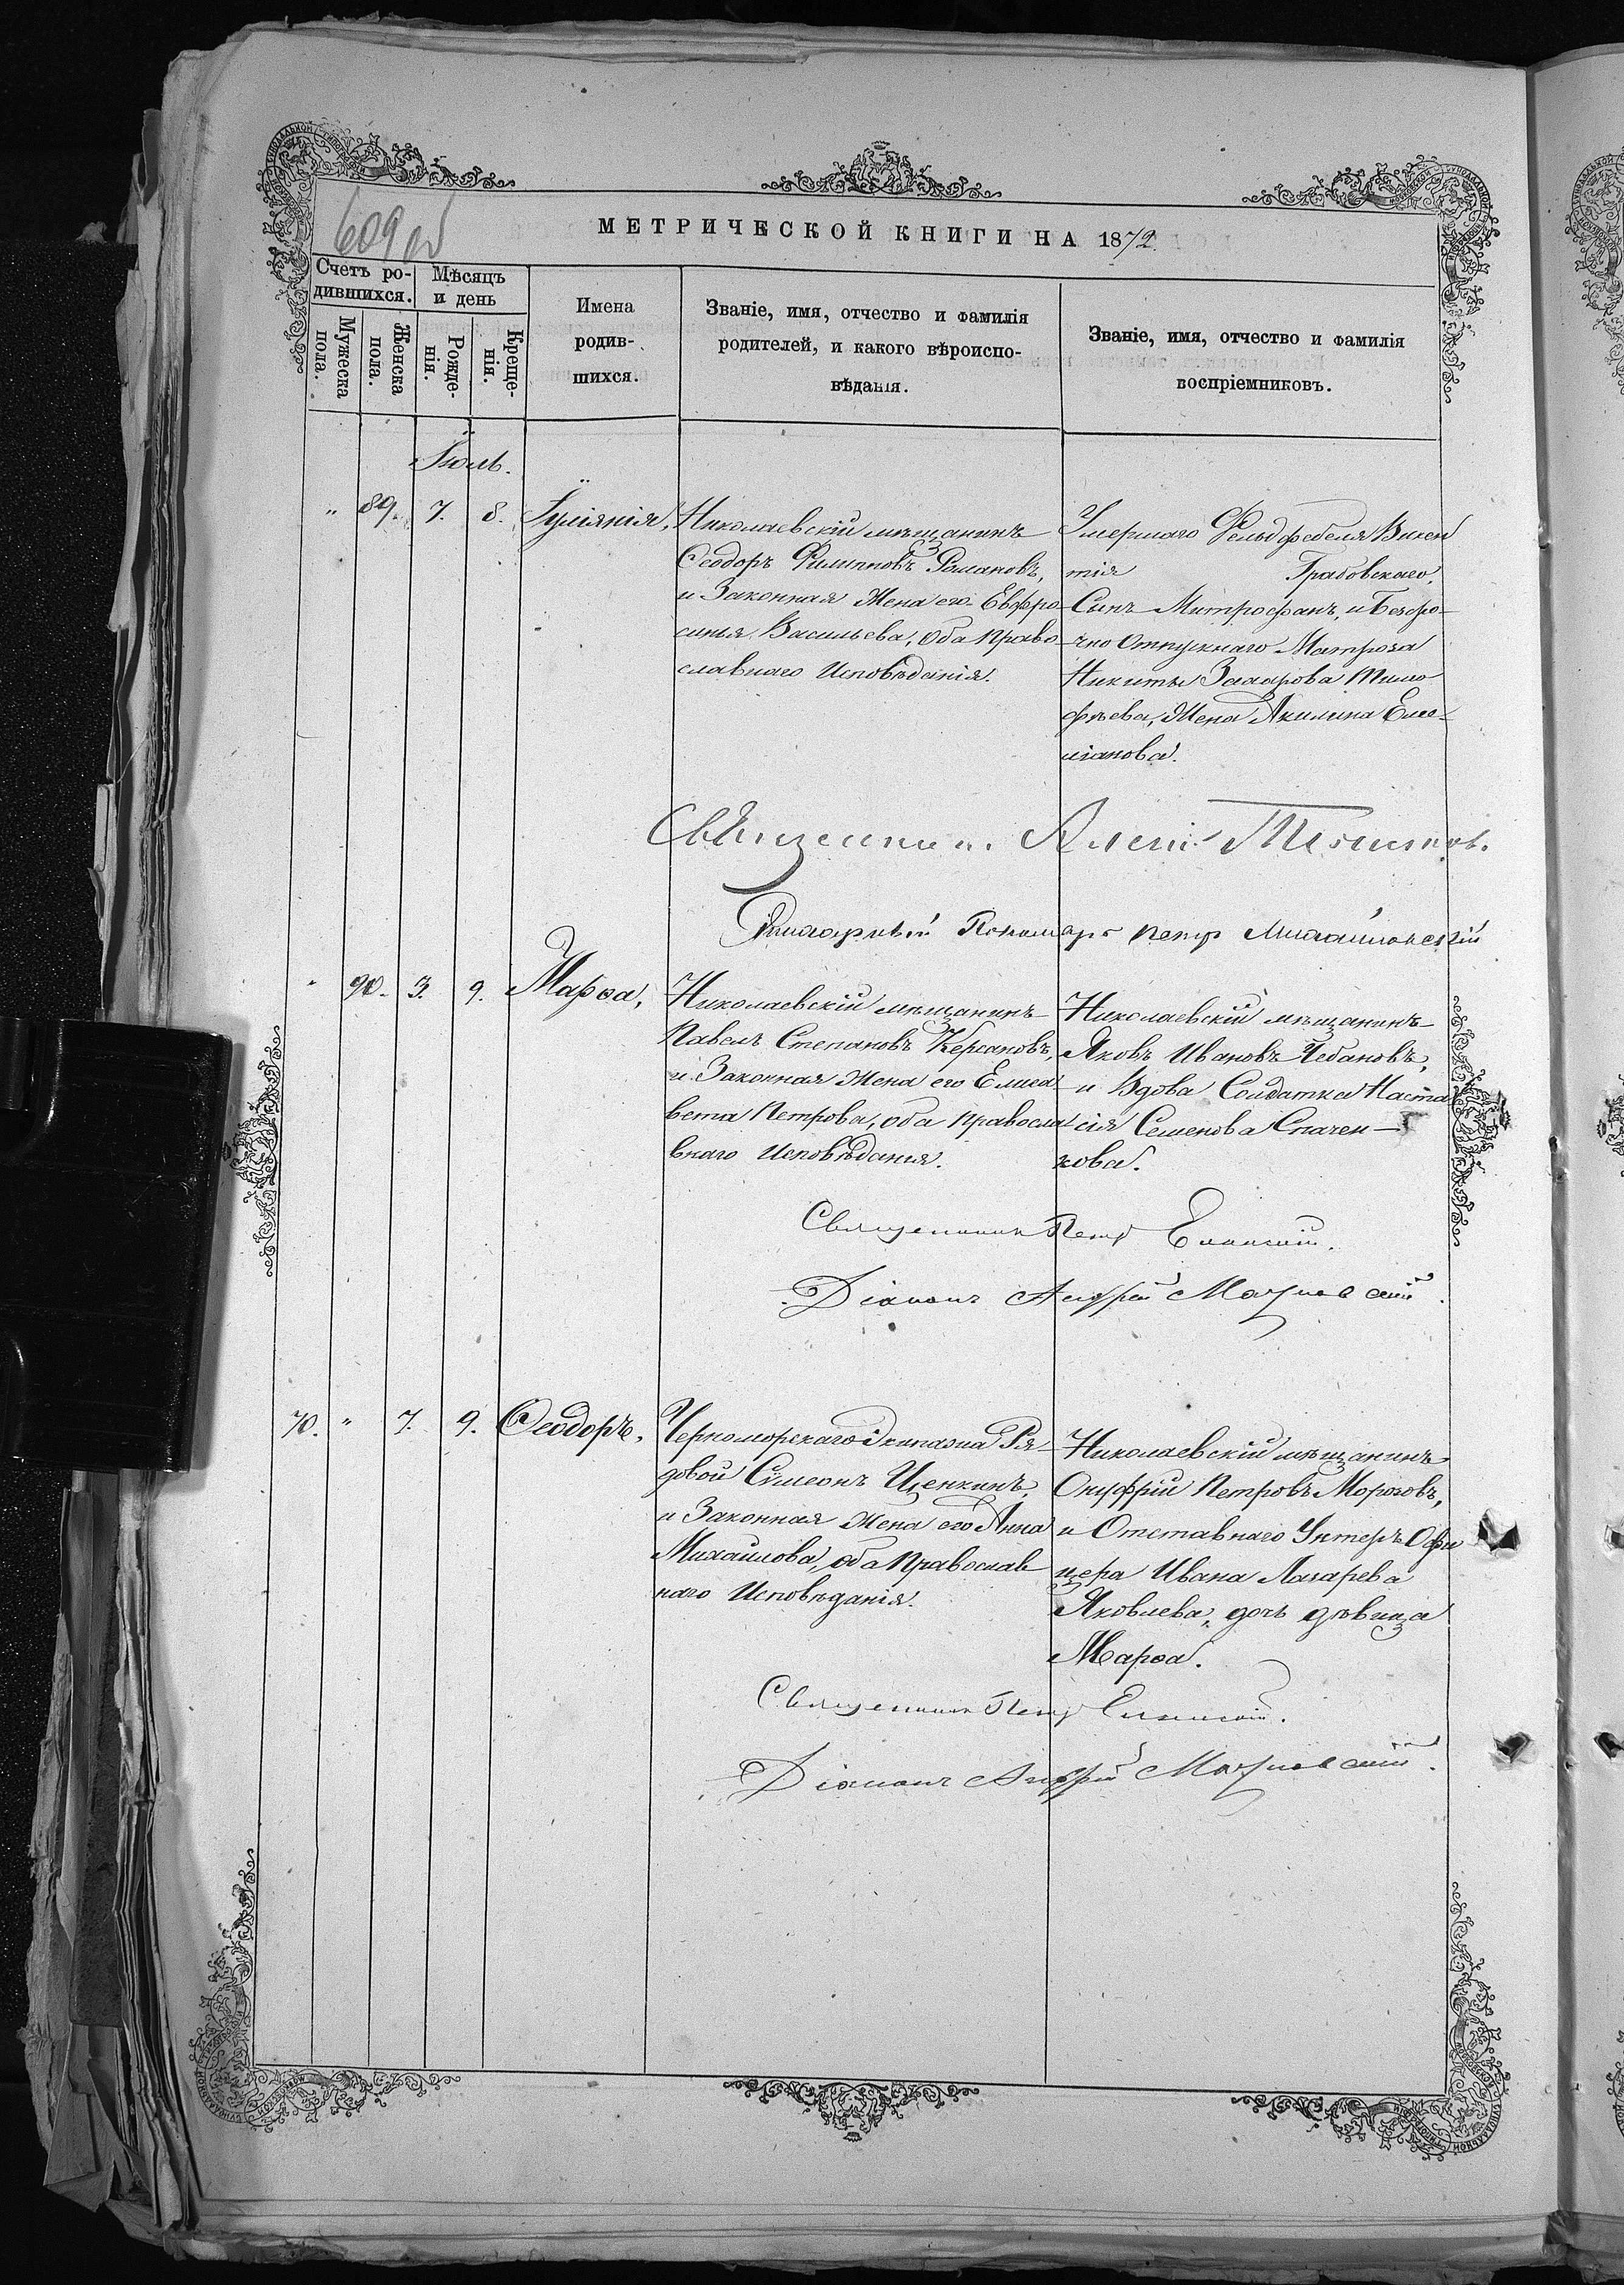 609 об
МЕТРИЧЕСКОЙ КНИГИ НА 1872
Счетъ ро-
дившихся.
Мѣсяцъ
и день
Мужеска
пола.
Женска
пола.
Рожде-
нія.
Креще-
нія.
Имена
родив-
шихся.
Званіе, имя, отчество и фамилія
родителей, и какого вѣроиспо-
вѣданія.
Званіе, имя, отчество и фамилія
воспріемниковъ.
Іюль.
" 89. 7. 8. Іуліянія,
Николаевскій мѣщанинъ
Ѳеодоръ Филипповъ Романовъ,
и Законная Жена его Евфро-
синья Васильева, оба право-
славнаго Исповѣданія.
Умершаго Фельдфебеля Викен
тія Грабовскаго,
Сынъ Митрофанъ, и Безсро-
чно Отпускнаго Матроза
Никиты Захарова Тимо
фѣева, Жена Акилина Еме-
ліанова.
Священникъ Алексій
Пономарь Петръ Михайловскій
" 90. 3. 9. Марѳа,
Николаевскій мѣщанинъ
Павелъ Степановъ Керсановъ,
и Законная Жена его Елиса-
вета Петрова, оба Правосла-
внаго Исповѣданія.
Николаевскій мѣщанинъ
Яковъ Ивановъ Чебановъ,
и Вдова Солдатка Наста
сія Семенова Спачен-
кова.
Священникъ Петръ Еланскій.
Діаконъ Андрей
70. " 7. 9. Ѳеодоръ,
Черноморскаго Экипажа Ря-
довой Сѵмеонъ Щенкинъ,
и Законная Жена его Анна
Михайлова, оба Православ
наго Исповѣданія.
Николаевскій мѣщанинъ
Онуфрій Петровъ Морозовъ,
и Отставнаго Унтеръ Офи
цера Ивана Лазарева
Яковлева, дочь дѣвица
Марѳа.
Священникъ Петръ Еланскій.
Діаконъ Андрей